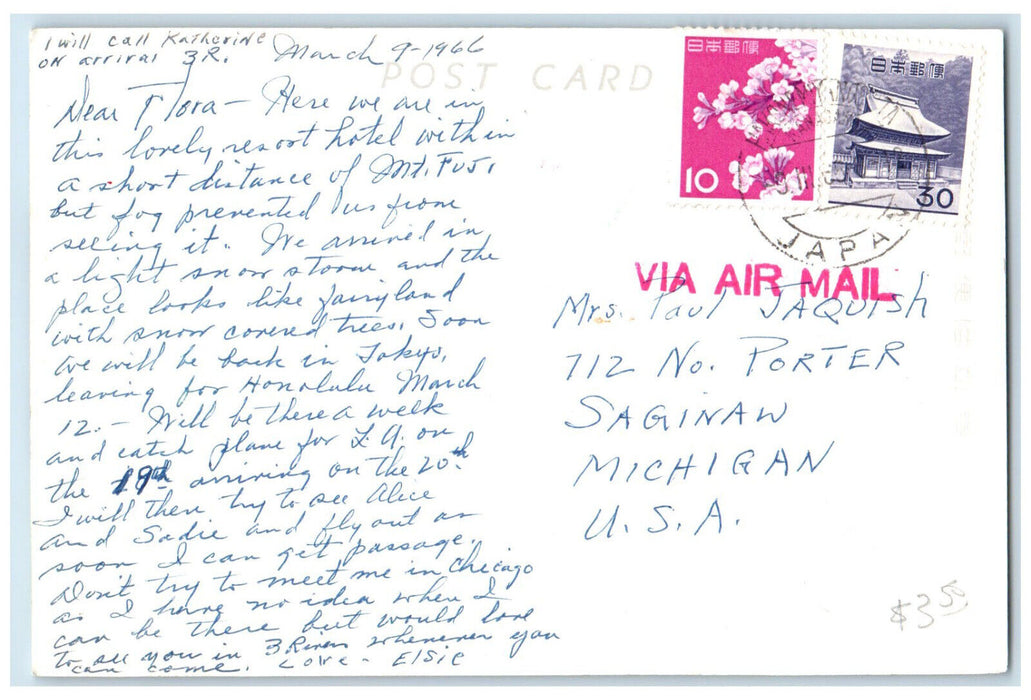 I will call Katherine
on arrival 3R.
March 9-1966
POST CARD
Dear Flora - Here we are in
this lovely resort hotel within
a short distance of Mt. Fuji,
but fog prevented us from
seeing it. We arrived in
a light snow storm and the
place looks like fairyland
with snow covered trees. Soon
we will be back in Tokyo,
leaving for Honolulu March
12. - Will be there a week
and catch plane for L.A. on
the 19th arriving on the 20th
I will then try to see Alice
and Sadie and fly out as
soon I can get passage.
Don't try to meet me in Chicago
as I have no idea when I
can be there but would love
to see you in 3 Rivers whenever you
can come. Love - Elsie
日本郵便
10
日本郵便
30
JAPA
VIA AIR MAIL
Mrs. Paul JAQUISH
712 No. PORTER
SAGINAW
MICHIGAN
U.S.A.
$3.50